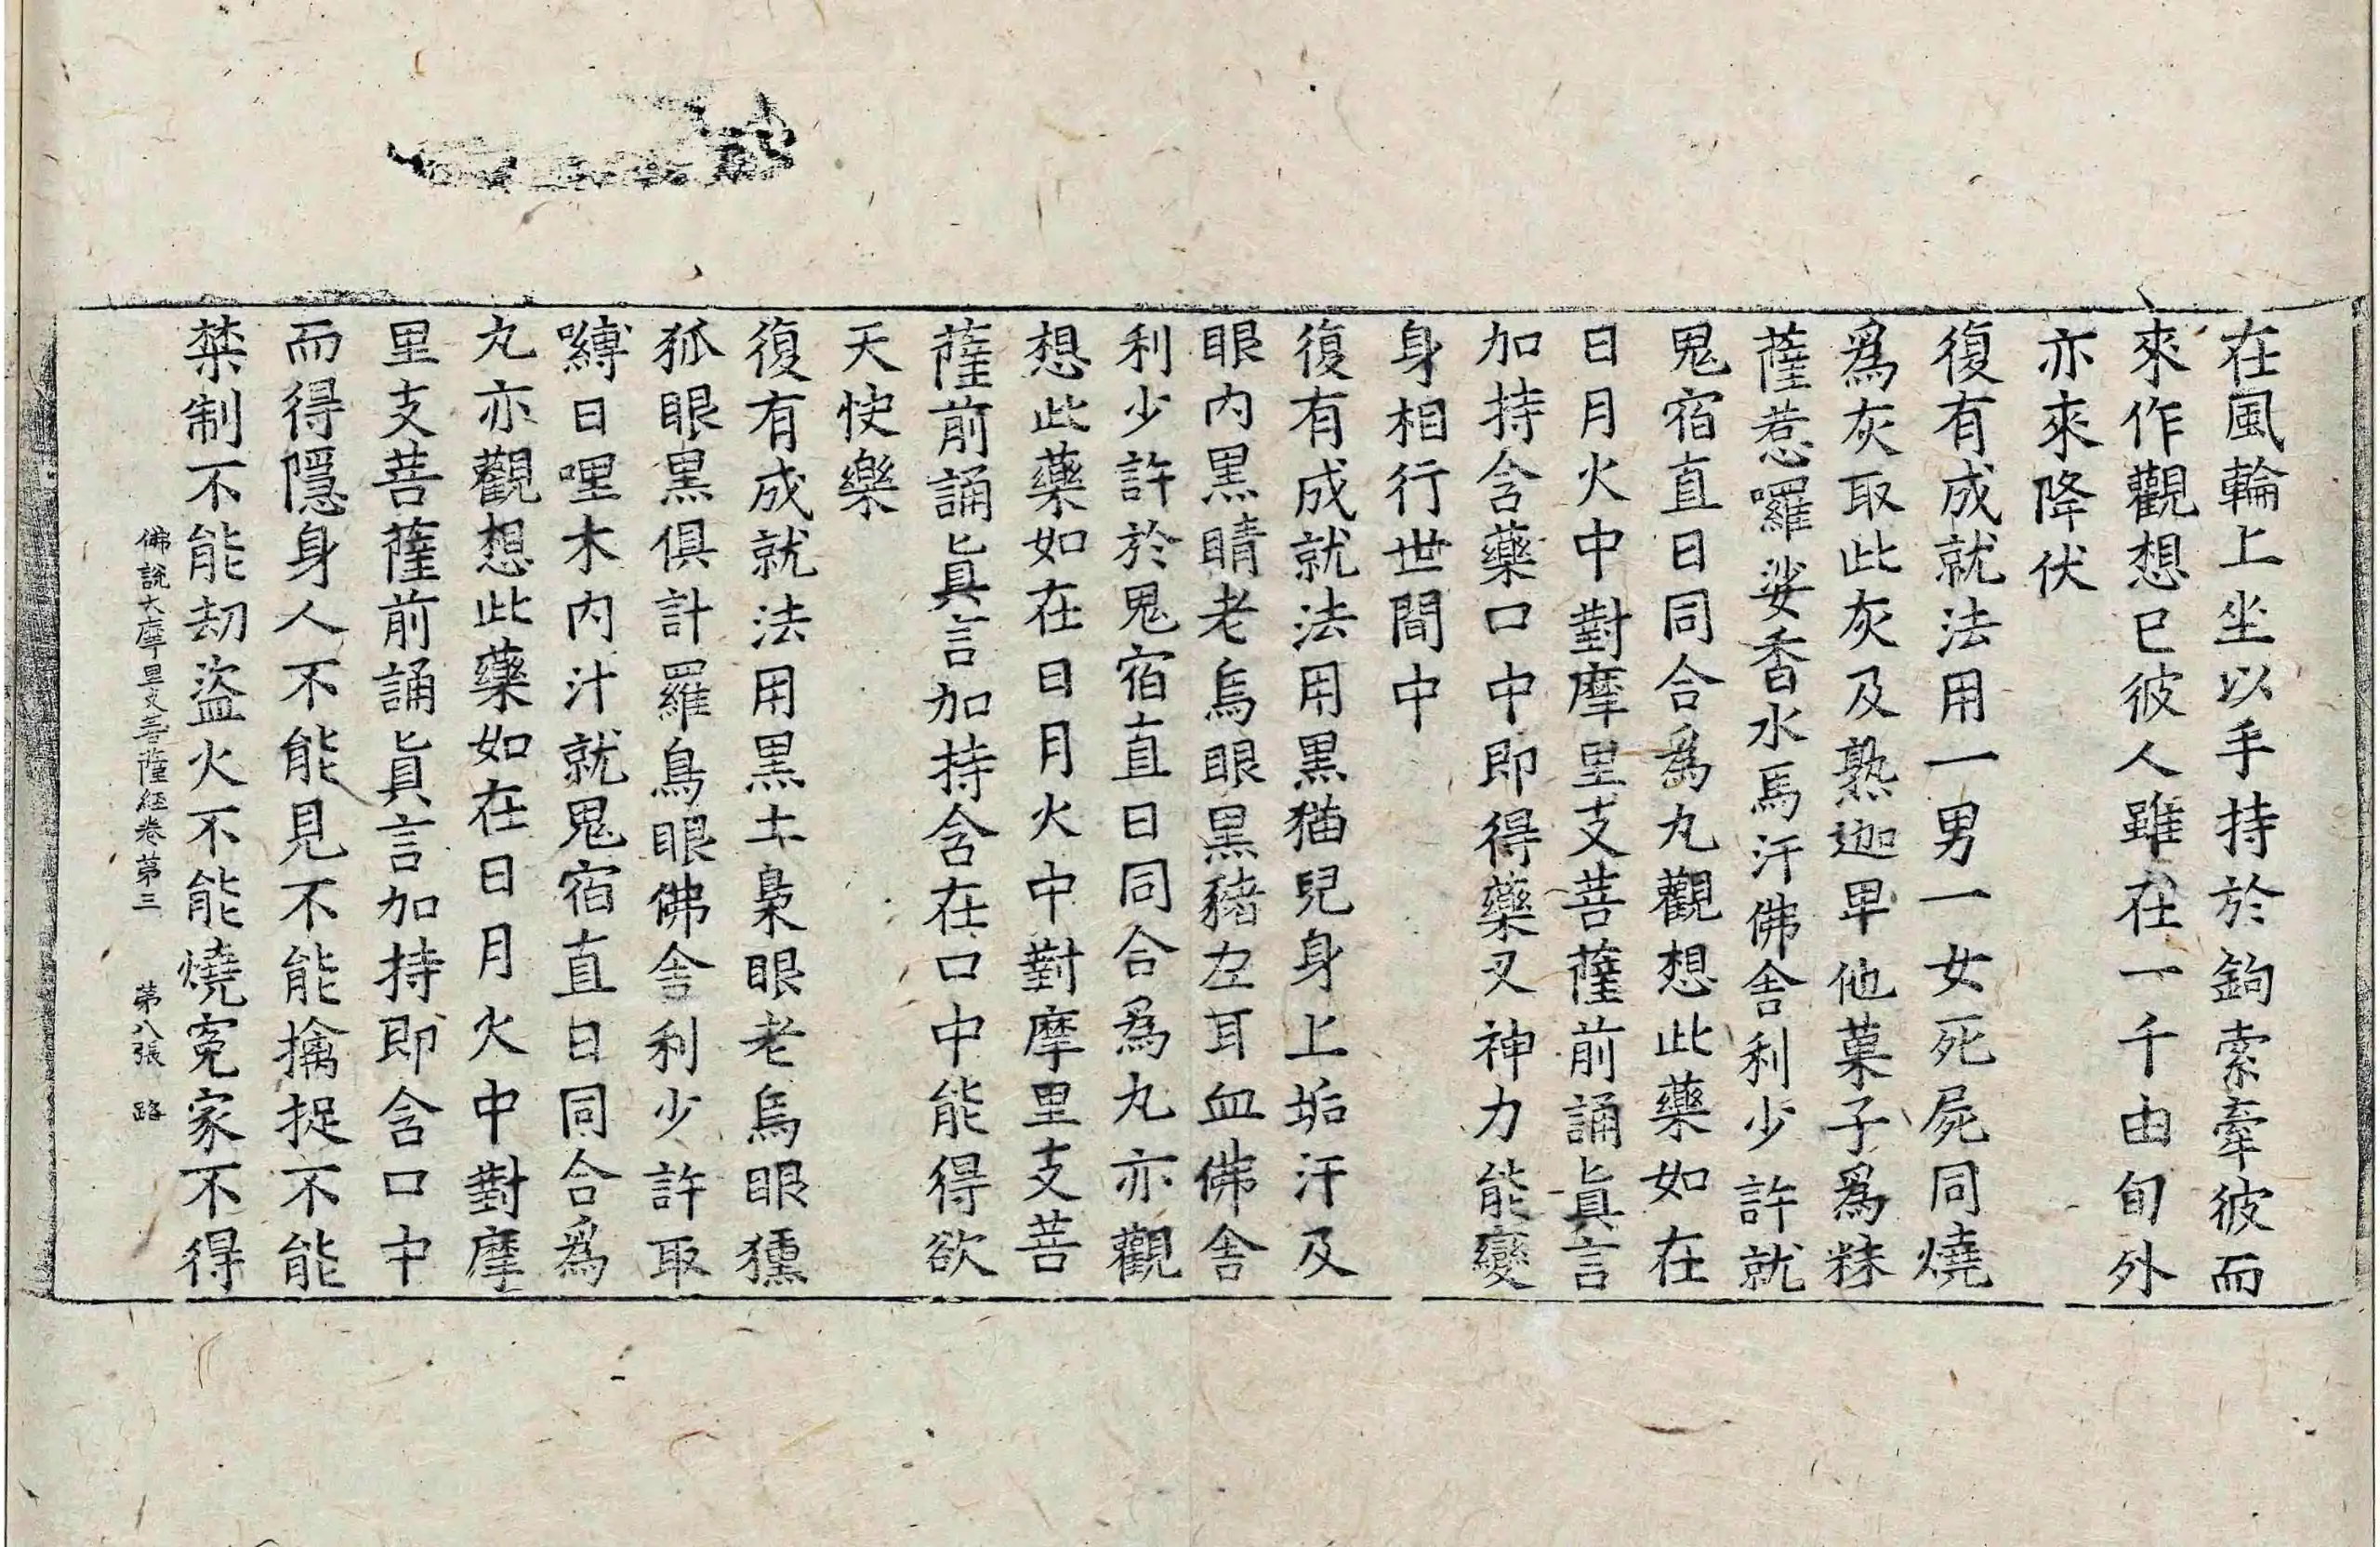 在風輪上坐以手持於鉤索牽彼而
來作觀想已彼人雖在一千由旬外
亦來降伏
復有成就法用一男一女死屍同燒
爲灰取此灰及熟迦毕他菓子爲粖
薩惹囉娑香水馬汗佛舍利少許就
鬼宿直日同合爲丸觀想此藥如在
日月火中對摩里支菩薩前誦眞言
加持含藥口中即得藥叉神力能變
身相行世間中
復有成就法用黑猫兒身上垢汗及
眼內黑睛老烏眼黑豬左耳血佛舍
利少許於鬼宿直日同合爲丸亦觀
想此藥如在日月火中對摩里支菩
薩前誦眞言加持含在口中能得欲
天快樂
復有成就法用黑土梟眼老烏眼獯
狐眼黑俱計羅鳥眼佛舍利少許取
嚩日哩木內汁就鬼宿直日同合爲
丸亦觀想此藥如在日月火中對摩
里支菩薩前誦眞言加持即含口中
而得隱身人不能見不能擒捉不能
禁制不能劫盜火不能燒寃家不得
佛說大摩里支菩薩経卷第三 第八張 路